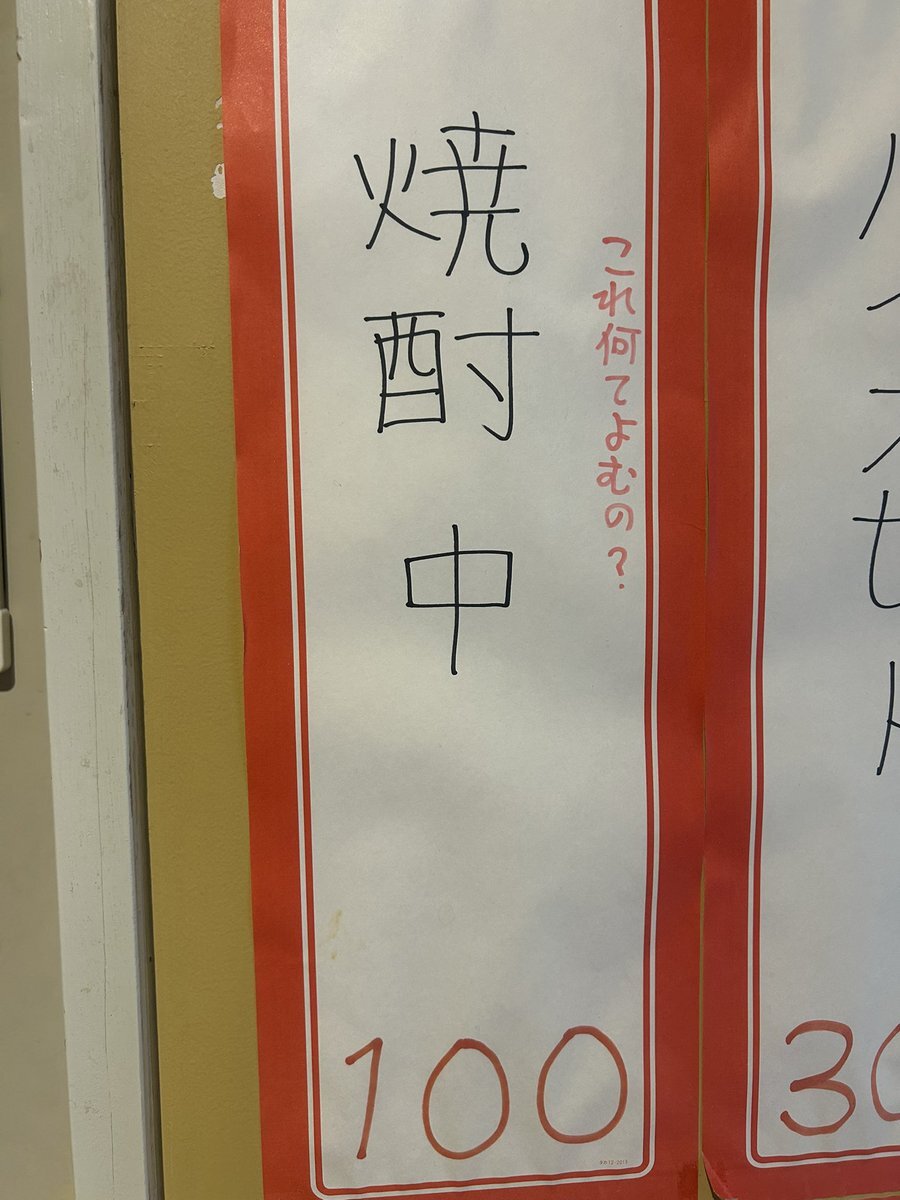 これ何てよむの?
焼酎 中
100
30